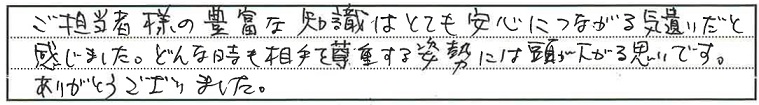 ご担当者様の豊富な知識はとても安心につながる気遣いだと
感じました。どんな時も相手を尊重する姿勢には頭が下がる思いです。
ありがとうございました。